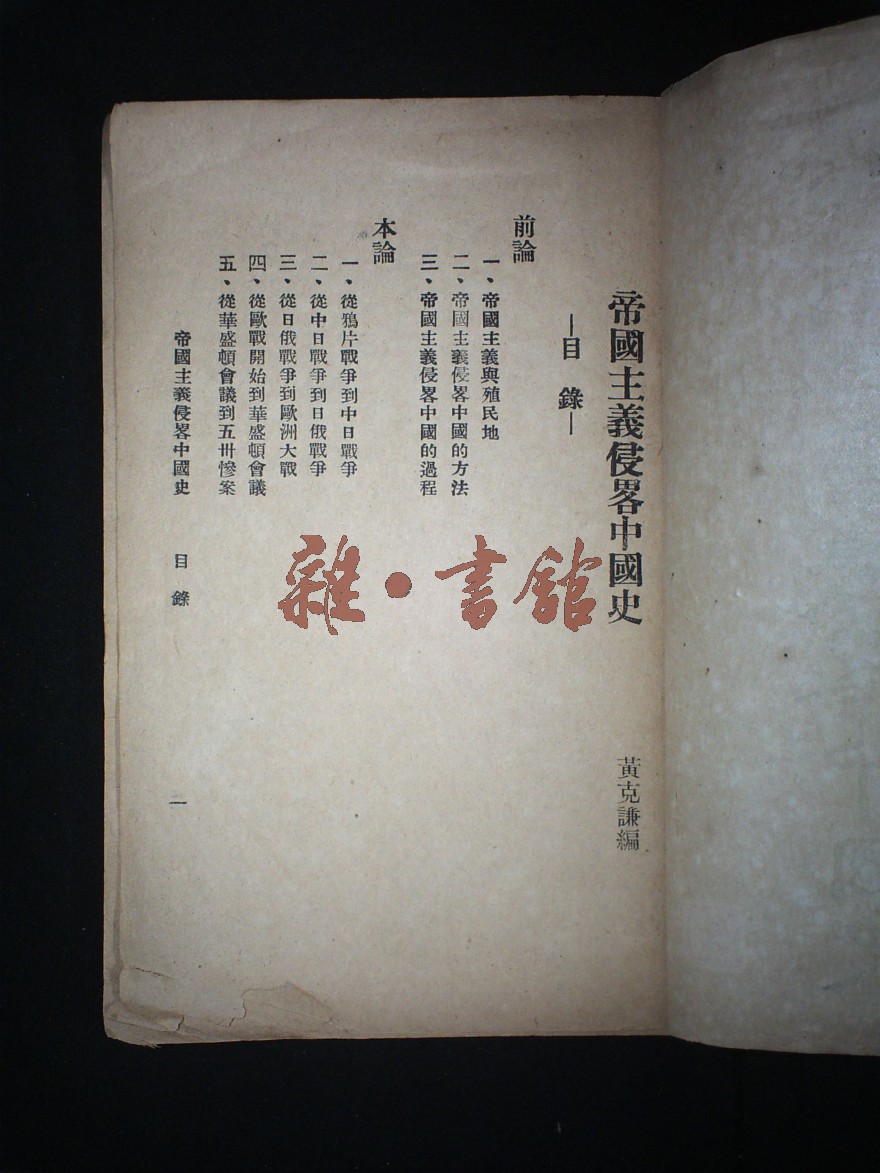 帝國主義侵畧中國史
黃克謙編
—目錄—
前論
一、帝國主義與殖民地
二、帝國主義侵畧中國的方法
三、帝國主義侵畧中國的過程
本論
一、從鴉片戰爭到中日戰爭
二、從中日戰爭到日俄戰爭
三、從日俄戰爭到歐洲大戰
四、從歐戰開始到華盛頓會議
五、從華盛頓會議到五卅慘案
帝國主義侵畧中國史 目錄 一
雜·書館